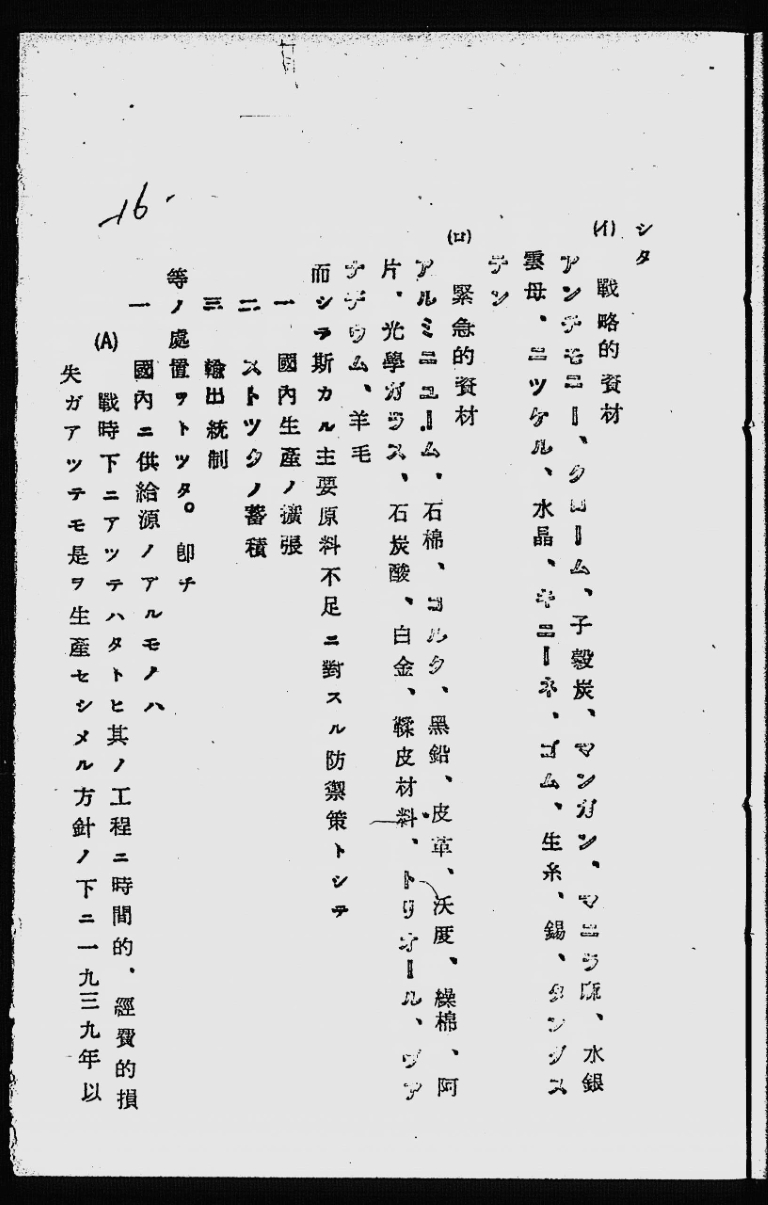 16
シタ
(イ) 戰略的資材
アンチモニー、クローム、子殼炭、マンガン、マニラ麻、水銀
雲母、ニツケル、水晶、キニーネ、ゴム、生糸、錫、タングス
テン
(ロ) 緊急的資材
アルミニユーム、石棉、コルク、黑鉛、皮革、沃度、繰棉、阿
片、光學ガラス、石炭酸、白金、鞣皮材料、トリオール、ヴア
ナヂウム、羊毛
而シテ斯カル主要原料不足ニ對スル防禦策トシテ
一 國內生產ノ擴張
二 ストツクノ蓄積
三 輸出統制
等ノ處置ヲトツタ。卽チ
一 國內ニ供給源ノアルモノハ
(A) 戰時下ニアツテハタトヒ其ノ工程ニ時間的、經費的損
失ガアツテモ是ヲ生產セシメル方針ノ下ニ一九三九年以